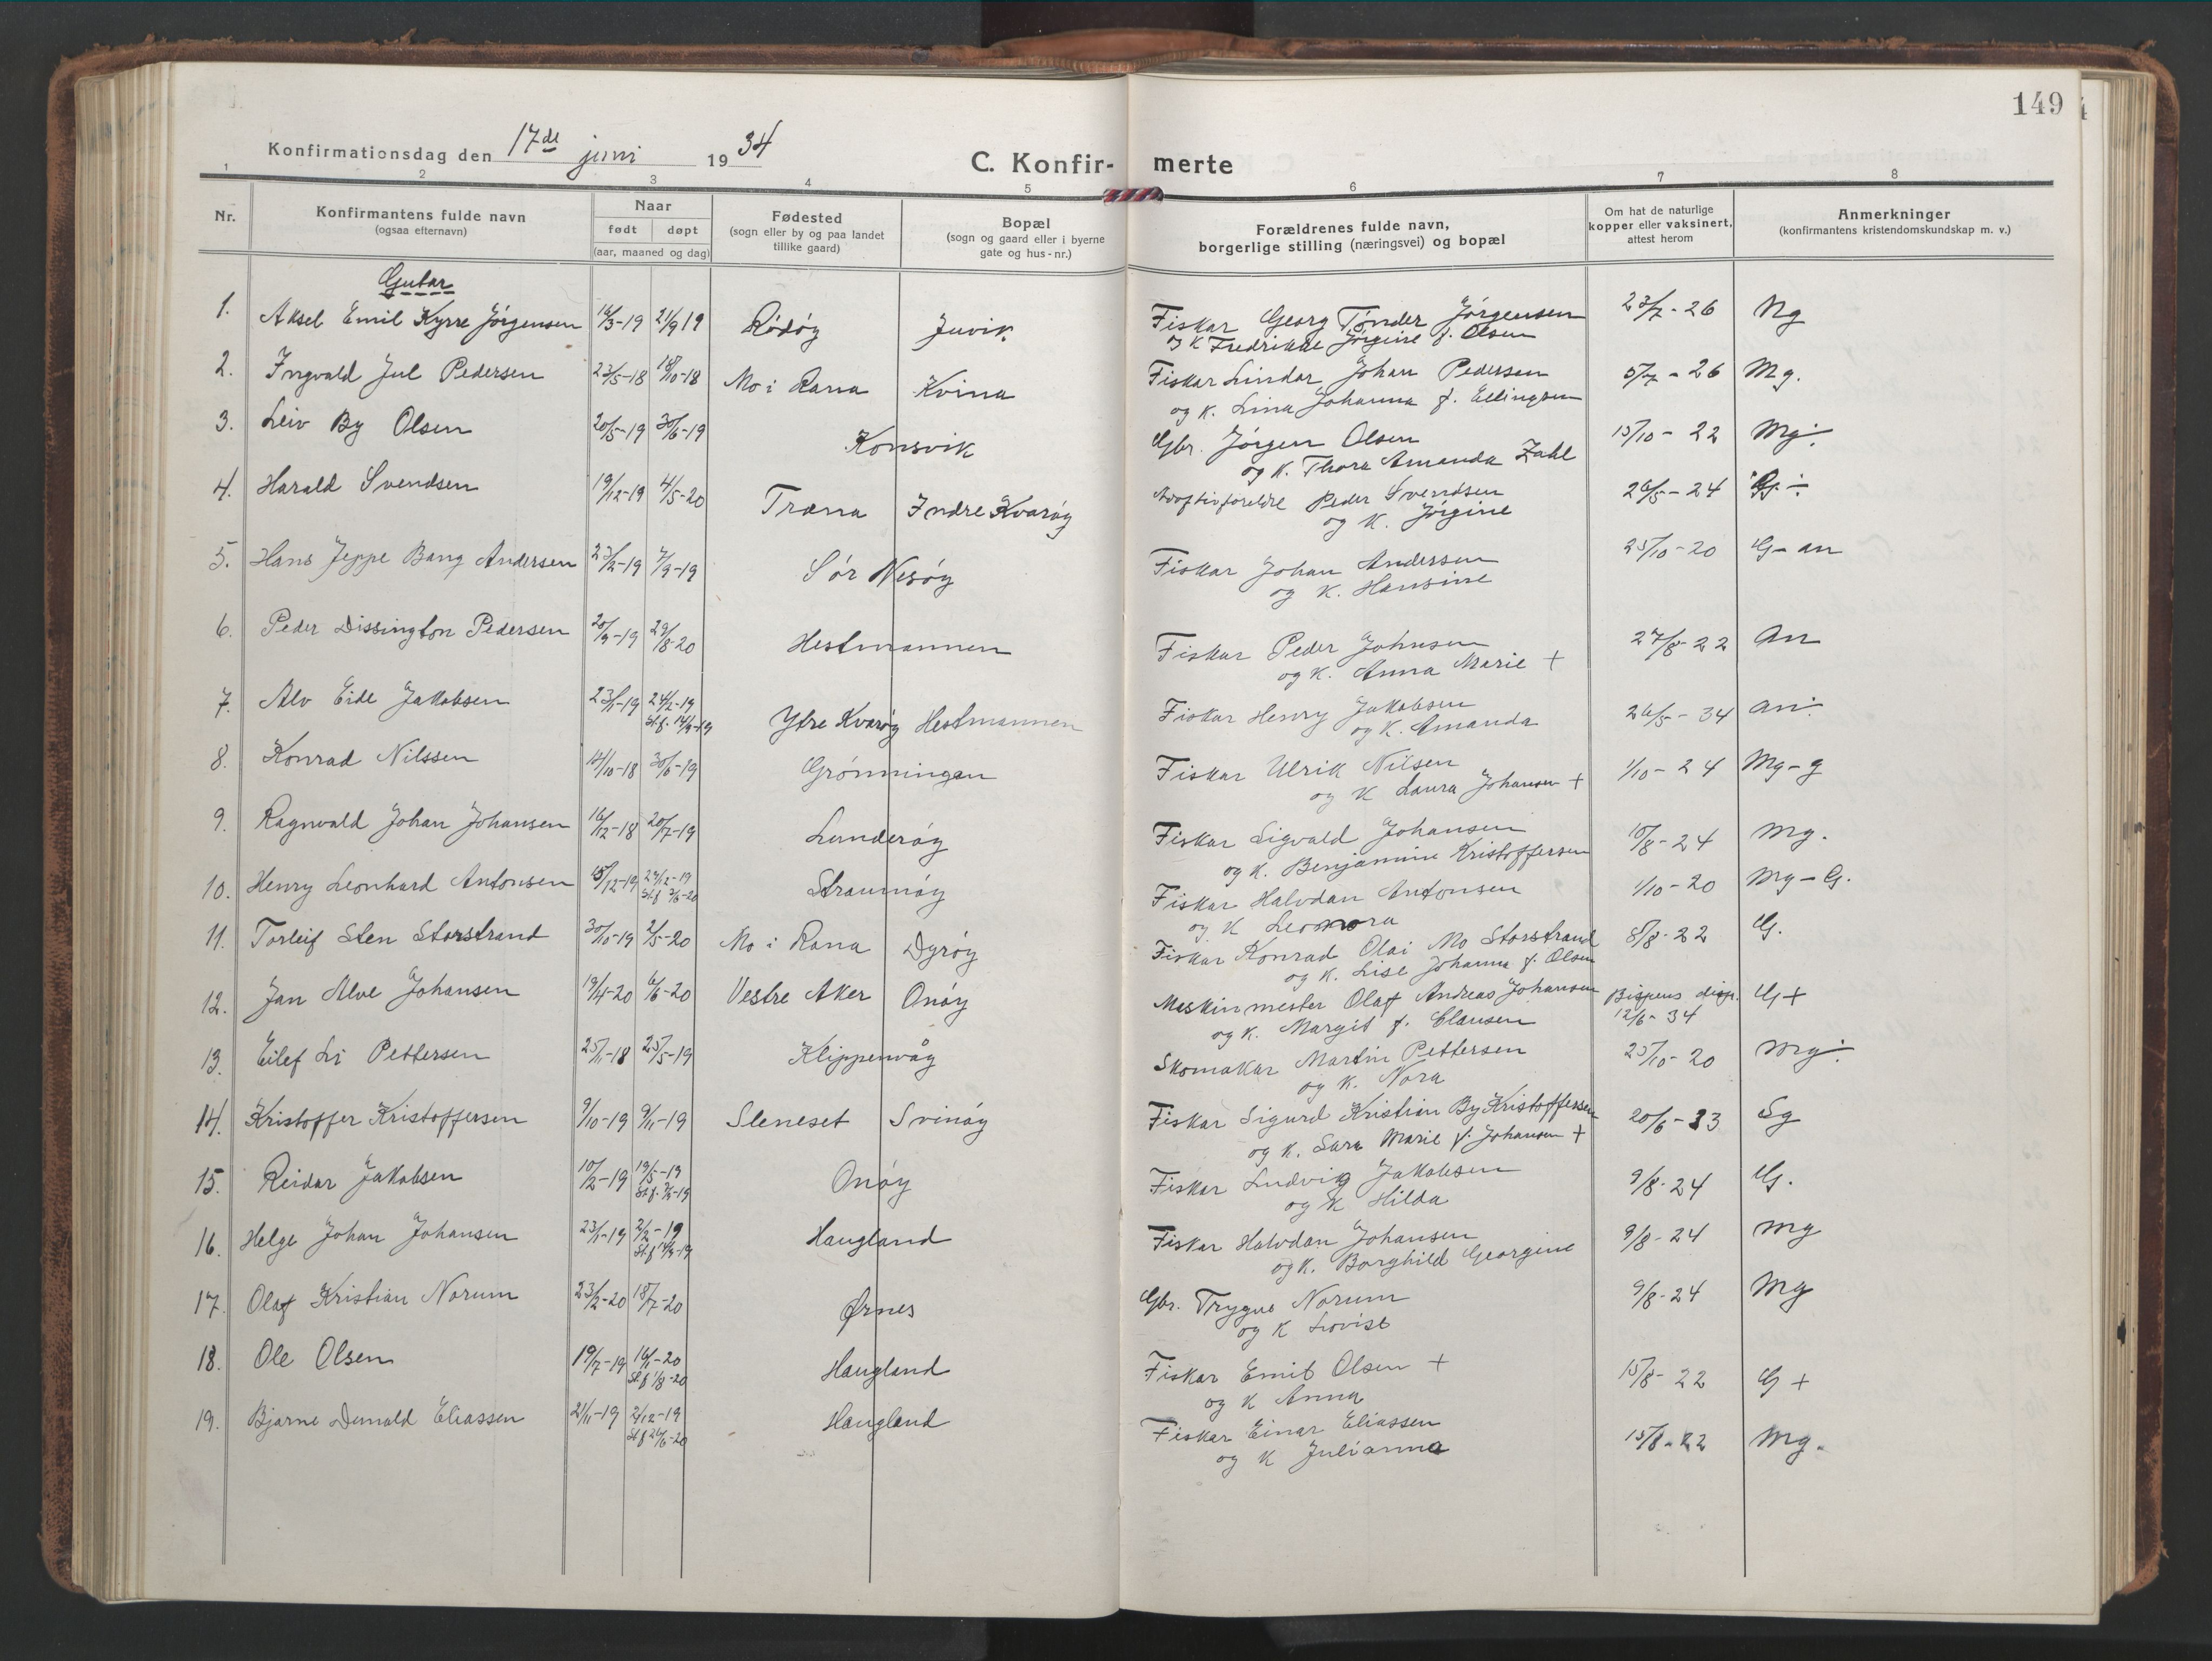 149
Konfirmationsdag den 17de juni 1934
C. Konfirmerte
1 2 3 4 5 6 7 8
Nr.
Konfirmantens fulde navn
(ogsaa efternavn)
Naar
født døpt
(aar, maaned og dag)
Fødested
(sogn eller by og paa landet
tillike gaard)
Bopæl
(sogn og gaard eller i byerne
gate og hus-nr.)
Forældrenes fulde navn,
borgerlige stilling (næringsvei) og bopæl
Om hat de naturlige
kopper eller vaksinert,
attest herom
Anmerkninger
(konfirmantens kristendomskundskap m. v.)
Gutar
1. Aksel Emil Kyrre Jørgensen 16/3-19 21/9 19 Rødøy Juvik Fiskar Georg Tønder Jørgensen 23/7-26 Ng
og K Fredrikke Jørgine f. Olsen
2. Ingvald Jul Pedersen 23/5-18 18/10-18 Mo i Rana Kvina Fiskar Lindar Johan Pedersen 5/7-26 Mg.
og K. Lina Johanna f. Ellingsen
3. Leiv By Olsen 20/5-19 30/6-19 Konsvik Gbr. Jørgen Olsen 15/10-22 Mg÷
og K. Thora Amanda Zahl
4. Harald Svendsen 19/12-19 4/5-20 Træna Indre Kvarøy Adoptivforeldre Peder Svendsen 26/5-24 G÷
og K. Jørgine
5. Hans Jeppe Bang Andersen 23/2-19 7/9-19 Sør Nesøy Fiskar Johan Andersen 25/10-20 G-an
og K. Hansine
6. Peder Dissington Pedersen 20/9-19 29/8-20 Hestmannen Fiskar Peder Johnsen 27/8-22 An
og K. Anna Marie +
7. Alv Eide Jakobsen 23/1-19 24/2-19 Ytre Kvarøy Hestmannen Fiskar Henry Jakobsen 26/5-34 an÷
St.f. 14/9-19 og K. Amanda
8. Konrad Nilssen 14/10-18 30/6-19 Grønningen Fiskar Ulrik Nilsen 1/10-24 Mg-g
og K Laura Johansen +
9. Ragnvald Johan Johansen 16/12-18 20/7-19 Lunderøy Fiskar Sigvald Johansen 15/8-24 Mg.
og K. Benjamine Kristoffersen
10. Henry Leonhard Antonsen 15/12-19 29/12-19 Straumøy Fiskar Halvdan Antonsen 1/10-20 Mg-G.
og K Leonora
11. Torleif Sten Storstrand 30/10-19 2/5-20 Mo i Rana Dyrøy Fiskar Konrad Olai Mo Storstrand 8/8-22 G.
og K. Lise Johanna f. Olsen
12. Jan Alve Johansen 19/4-20 6/6-20 Vestre Aker Onøy Maskinmester Olaf Andreas Johansen Bispens disp. G+
og K. Margit f. Clausen 12/6-34
13. Eilef Li Pettersen 25/11-18 25/5-19 Klippenvåg Skomakar Martin Pettersen 25/10-20 Mg÷
og K. Nora
14. Kristoffer Kristoffersen 9/10-19 9/11-19 Sleneset Svinøy Fiskar Sigurd Kristian By Kristoffersen 20/6-33 Sg
og K. Sara Marie f. Johansen +
15. Reidar Jakobsen 10/2-19 19/5-19 Onøy Fiskar Ludvig Jakobsen 9/8-24 G.
og K Hilda
16. Helge Johan Johansen 23/1-19 2/2-19 Haugland Fiskar Halvdan Johansen 9/8-24 Mg
St.f 14/9-19 og K. Borghild Georgine
17. Olaf Kristian Norum 23/2-20 18/7-20 Ørnes Gbr. Trygve Norum 9/8-24 Mg
og K Lovise
18. Ole Olsen 19/7-19 16/1-20 Haugland Fiskar Emil Olsen + 15/8-22 G +
St.f 1/8-20 og K Anna
19. Bjarne Demald Eliassen 21/11-19 2/12-19 Haugland Fiskar Einar Eliassen 15/8-22 Mg.
St.f 20/6-20 og K Julianna